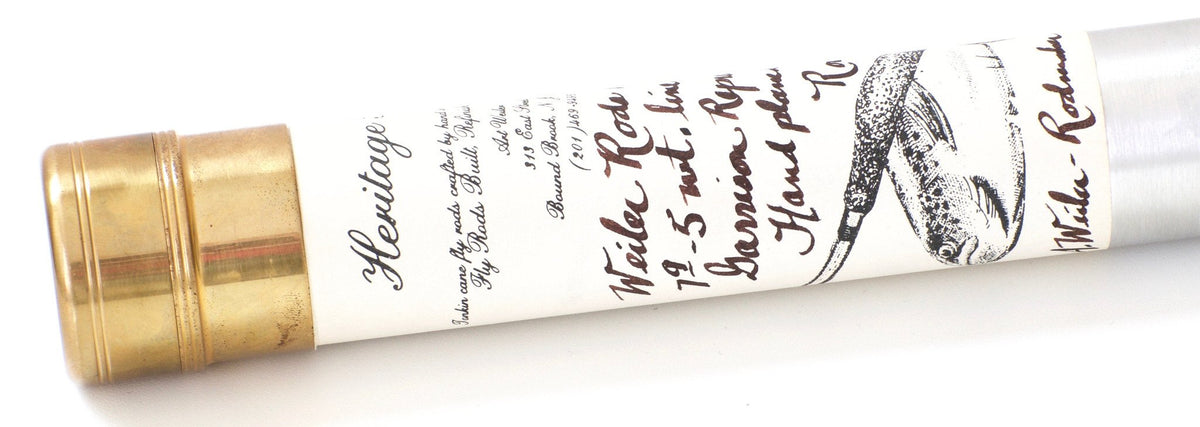 Heritage
Tonkin cane fly rods crafted by hand
Fly Rods Built, Refini
Art Weile
313 East
Bound Brook, N
(201) 469-
Weiler Rods
79 - 5 wt. line
Garrison Rep
Hand plane
Ro
. Weiler - Rodmaker